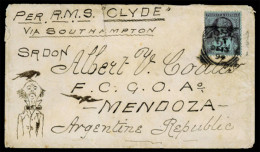 PER R.M.S. "CLYDE"
VIA SOUTHAMPTON
SR DON
Albert V. Coates
F. C. G. O. Ao
MENDOZA
Argentine Republic